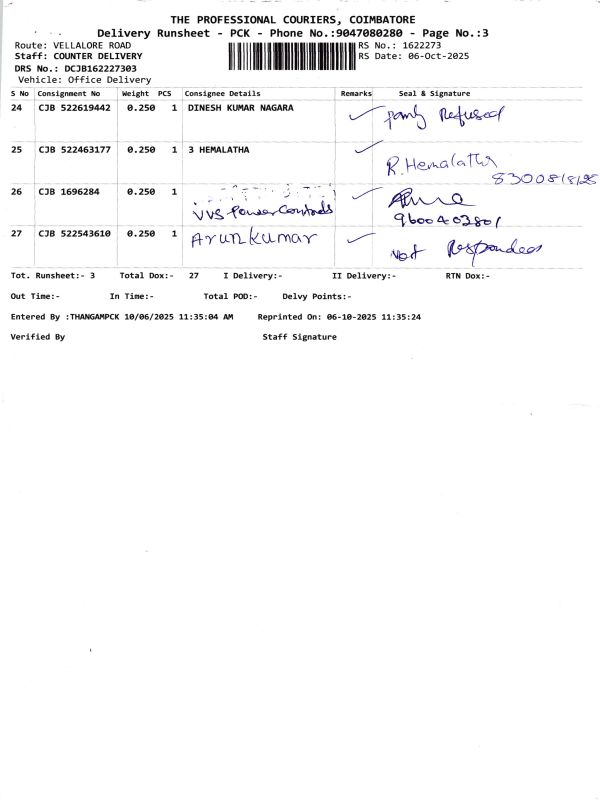 THE PROFESSIONAL COURIERS, COIMBATORE
Delivery Runsheet - PCK - Phone No.:9047080280 - Page No.:3
Route: VELLALORE ROAD RS No.: 1622273
Staff: COUNTER DELIVERY RS Date: 06-Oct-2025
DRS No.: DCJB162227303
Vehicle: Office Delivery
S No Consignment No Weight PCS Consignee Details Remarks Seal & Signature
24 CJB 522619442 0.250 1 DINESH KUMAR NAGARA Refused
25 CJB 522463177 0.250 1 3 HEMALATHA R.Hemalatha
26 CJB 1696284 0.250 1
VVS Power Controls 9600402801
27 CJB 522543610 0.250 1 Arunkumar Not
Tot. Runsheet:- 3 Total Dox:- 27 I Delivery:- II Delivery:- RTN Dox:-
Out Time:- In Time:- Total POD:- Delvy Points:-
Entered By :THANGAMPCK 10/06/2025 11:35:04 AM Reprinted On: 06-10-2025 11:35:24
Verified By Staff Signature